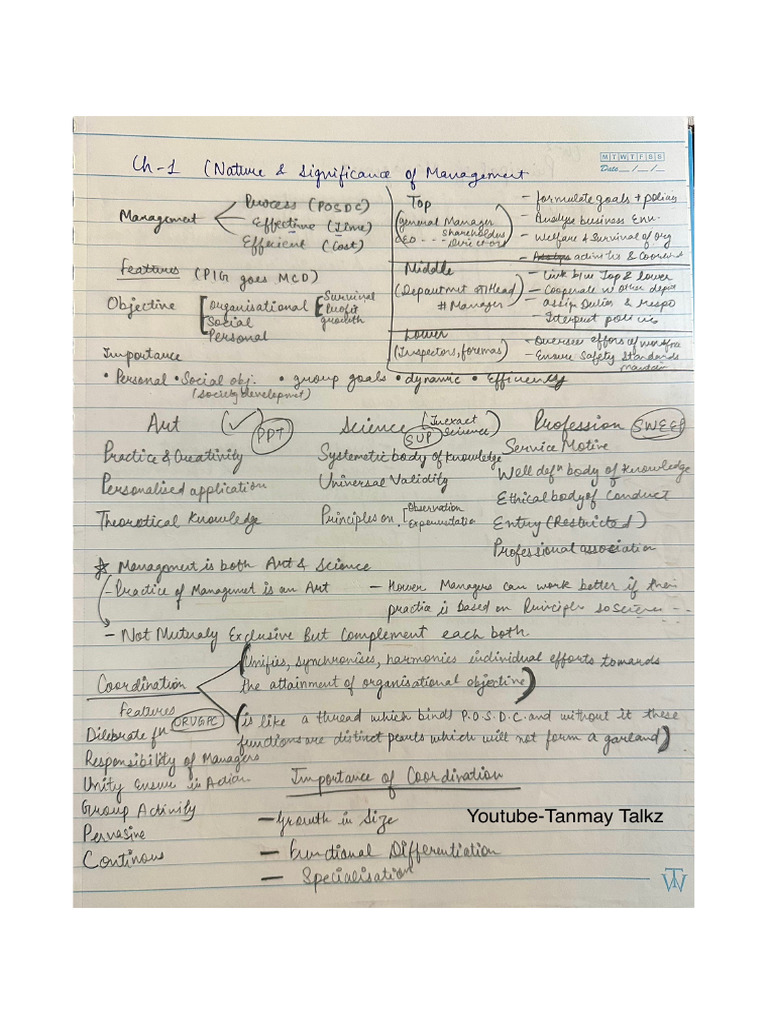 Ch-1 (Nature & Significance of Management
M T W T F S S
Date __/__/__
Management
Process (POSDC)
Effective (Time)
Efficient (Cost)
Features (PIG goes MCD)
Objective
Organisational
Social
Personal
Survival
Profit
growth
Importance
• Personal • Social obj. • group goals • dynamic • Efficiency
(Society development)
Top
(general Manager
CEO ---- Shareholders
Directors)
- formulate goals + policies
- Analyse business Env.
- Welfare & Survival of org
- activities & Coordinat
Middle
(Department Head
# Manager)
- Link b/w Top & lower
- Cooperate w other dept
- assign Duties & Respo
- Interpret policies
Lower
(Inspectors, foremas)
- Oversee efforts of workforce
- Ensure Safety Standards
maintain
Art (✓) PPT
Practice & Creativity
Personalised application
Theorotical Knowledge
Science (Inexact
Science)
SUP
Systemetic body of Knowledge
Universal Validity
Principles on
Observation
Experimentation
Profession SWEEP
Service Motive
Well defn body of Knowledge
Ethical body of Conduct
Entry (Restricted)
Professional association
☆ Management is both Art & Science
- Practice of Managment is an Art
- Hower Managers can work better if their
practice is based on Principles so Science ---
- Not Mutualy Exclusive But Complement each both.
Coordination
(Unifies, synchronises, harmonies individual efforts towards
the attainment of organisational objective)
(is like a thread which binds P.O.S.D.C. and without it these
functions are distinct pearls which will not form a garland)
Features
DRUGPC
Dilebrate fn
Responsibility of Managers
Unity Ensure in Action
Group Activity
Pervasive
Continous
Importance of Coordination
- Growth in Size
- Functional Differentiation
- Specialisation
Youtube-Tanmay Talkz